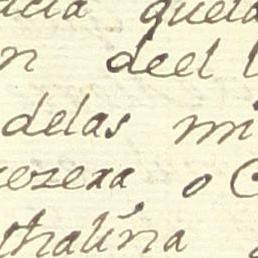 acia queda
n deel
delas mi
cezera, o C
thalúna